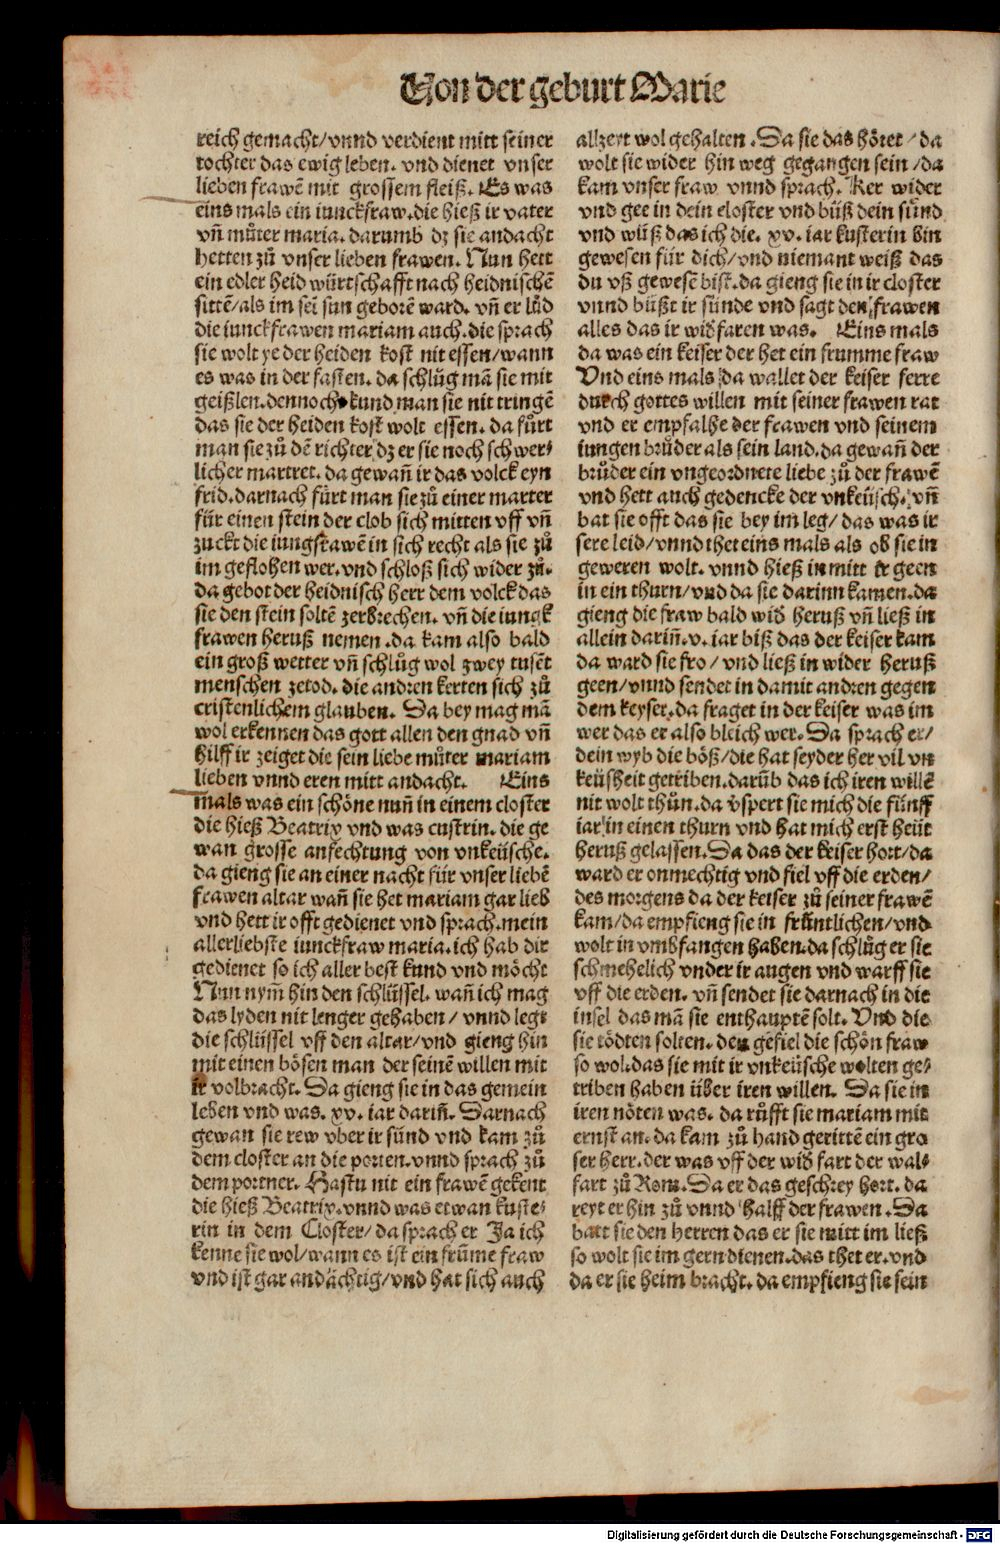 Von der geburt Marie
reich gemacht/vnnd verdient mitt seiner
tochter das ewig leben. vnd dienet vnser
lieben frawē mit grossem fleiß. Es was
eins mals ein iunckfraw.die hieß ir vater
vn̄ můter maria. darumb dz sie andacht
hetten zů vnser lieben frawen. Nun hett
ein edler heid würtschafft nach heidnischē
sittē/als im sei sun geborē ward. vn̄ er lůd
die iunckfrawen mariam auch. die sprach
sie wolt ye der heiden kost nit essen/wann
es was in der fasten. da schlůg mā sie mit
geißlen. dennoch kund man sie nit tringē
das sie der heiden kost wolt essen. da fůrt
man sie zů dē richter dz er sie noch schwer/
licher martret. da gewan̄ ir das volck eyn
frid. darnach fürt man sie zů einer marter
für einen stein der clob sich mitten vff vn̄
zuckt die iungfrawē in sich recht als sie zů
im geflohen wer. vnd schloß sich wider zů.
da gebot der heidnisch herr dem volck das
sie den stein soltē zerbrechen. vn̄ die iungk
frawen heruß nemen .da kam also bald
ein groß wetter vn̄ schlůg wol zwey tusēt
menschen zetod. die andren kerten sich zů
cristenlichem glauben. Da bey mag mā
wol erkennen das gott allen den gnad vn̄
hilff ir zeiget die sein liebe můter mariam
lieben vnnd eren mitt andacht. Eins
mals was ein schöne nun̄ in einem closter
die hieß Beatrix vnd was custrin. die ge
wan grosse anfechtung von vnkeüsche.
da gieng sie an einer nacht für vnser liebē
frawen altar wan̄ sie het mariam gar lieb
vnd hett ir offt gedienet vnd sprach. mein
allerliebste iunckfraw maria. ich hab dir
gedienet so ich aller best kund vnd möcht
Nun nym̄ hin den schlüssel. wan̄ ich mag
das lyden nit lenger gehaben/ vnnd legt
die schlüssel vff den altar/vnd gieng hin
mit einen bösen man der seinē willen mit
ir volbracht. Da gieng sie in das gemein
leben vnd was. xv. iar darin̄. Darnach
gewan sie rew vber ir sünd vnd kam zů
dem closter an die porten. vnnd sprach zů
dem portner. Hastu nit ein frawē gekent
die hieß Beatrix. vnnd was etwan kuste/
rin in dem Closter/ da sprach er Ja ich
kenne sie wol/wann es ist ein frūme fraw
vnd ist gar andächtig/vnd hat sich auch
allzeyt wol gehalten .Da sie das höret / da
wolt sie wider hin weg gegangen sein /da
kam vnser fraw vnnd sprach. Ker wider
vnd gee in dein closter vnd büß dein sünd
vnd wüß das ich die. xv. iar kusterin bin
gewesen für dich/vnd niemant weiß das
du vß gewesē bist. da gieng sie in ir closter
vnnd büßt ir sünde vnd sagt den frawen
alles das ir wid̄faren was. Eins mals
da was ein keiser der het ein frumme fraw
Vnd eins mals da wallet der keiser ferre
durch gottes willen mit seiner frawen rat
vnd er empfalhe der frawen vnd seinem
iungen brůder als sein land. da gewan̄ der
brůder ein vngeordnete liebe zů der frawē
vnd hett auch gedencke der vnkeüsch. vn̄
bat sie offt das sie bey im leg/ das was ir
sere leid/vnnd thet eins mals als ob sie in
geweren wolt. vnnd hieß in mitt ir geen
in ein thurn/vnd da sie darinn kamen. da
gieng die fraw bald wid̄ heruß vn̄ ließ in
allein darin̄. v. iar biß das der keiser kam
da ward sie fro/ vnd ließ in wider heruß
geen/vnnd sendet in damit andren gegen
dem keyser. da fraget in der keiser was im
wer das er also bleich wer. Da sprach er/
dein wyb die böß/die hat seyder her vil vn
keüsheit getriben. darūb das ich iren willē
nit wolt thůn. da v̄spert sie mich die fünff
iar in einen thurn vnd hat mich erst heüt
heruß gelassen. Da das der keiser hort/da
ward er onmechtig vnd fiel vff die erden/
des morgens da der keiser zů seiner frawē
kam/da empfieng sie in früntlichen/vnd
wolt in vmbfangen haben. da schlůg er sie
schmehelich vnder ir augen vnd warff sie
vff die erden. vn̄ sendet sie darnach in die
insel das mā sie enthauptē solt. Vnd die
sie tödten solten. den gefiel die schön fraw
so wol. das sie mit ir vnkeüsche wolten ge/
triben haben über iren willen. Da sie in
iren nöten was. da růfft sie mariam mit
ernst an. da kam zů hand gerittē ein gro
ser herr. der was vff der wid̄ fart der wal/
fart zů Rom. Da er das geschrey hort. da
reyt er hin zů vnnd halff der frawen. Da
batt sie den herren das er sie mitt im ließ
so wolt sie im gern dienen. das thet er. vnd
da er sie heim bracht. da empfieng sie sein
Digitalisierung gefördert durch die Deutsche Forschungsgemeinschaft - DFG